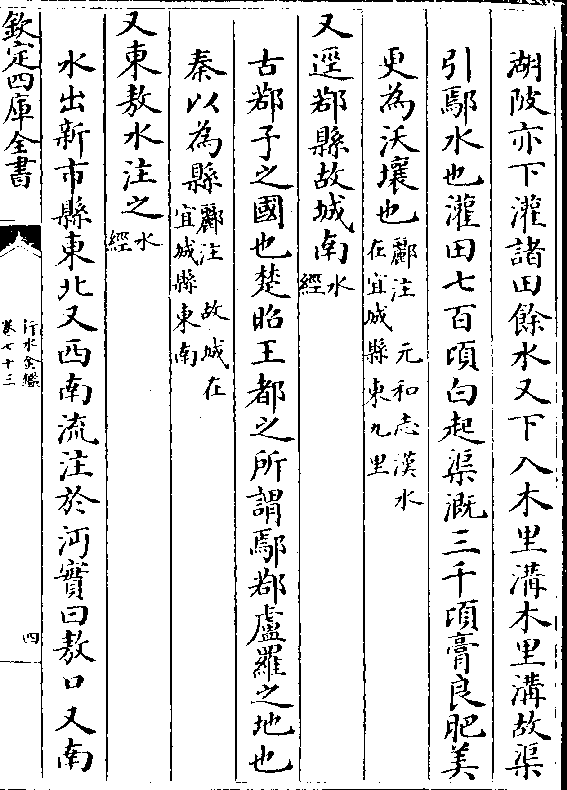 湖陂亦下灌諸田餘水又下入木里溝木里溝故渠
引鄢水也灌田七百頃白起渠溉三千頃膏良肥美
更為沃壤也酈注 元和志漢水
在宜城縣東九里
又逕鄀縣故城南水
經
古鄀子之國也楚昭王都之所謂鄢鄀盧羅之地也
秦以為縣酈注 故城在
宜城縣東南
又東敖水注之水
經
水出新市縣東北又西南流注於沔實曰敖口又南
欽定四庫全書
行水金鑑
卷七十三
四